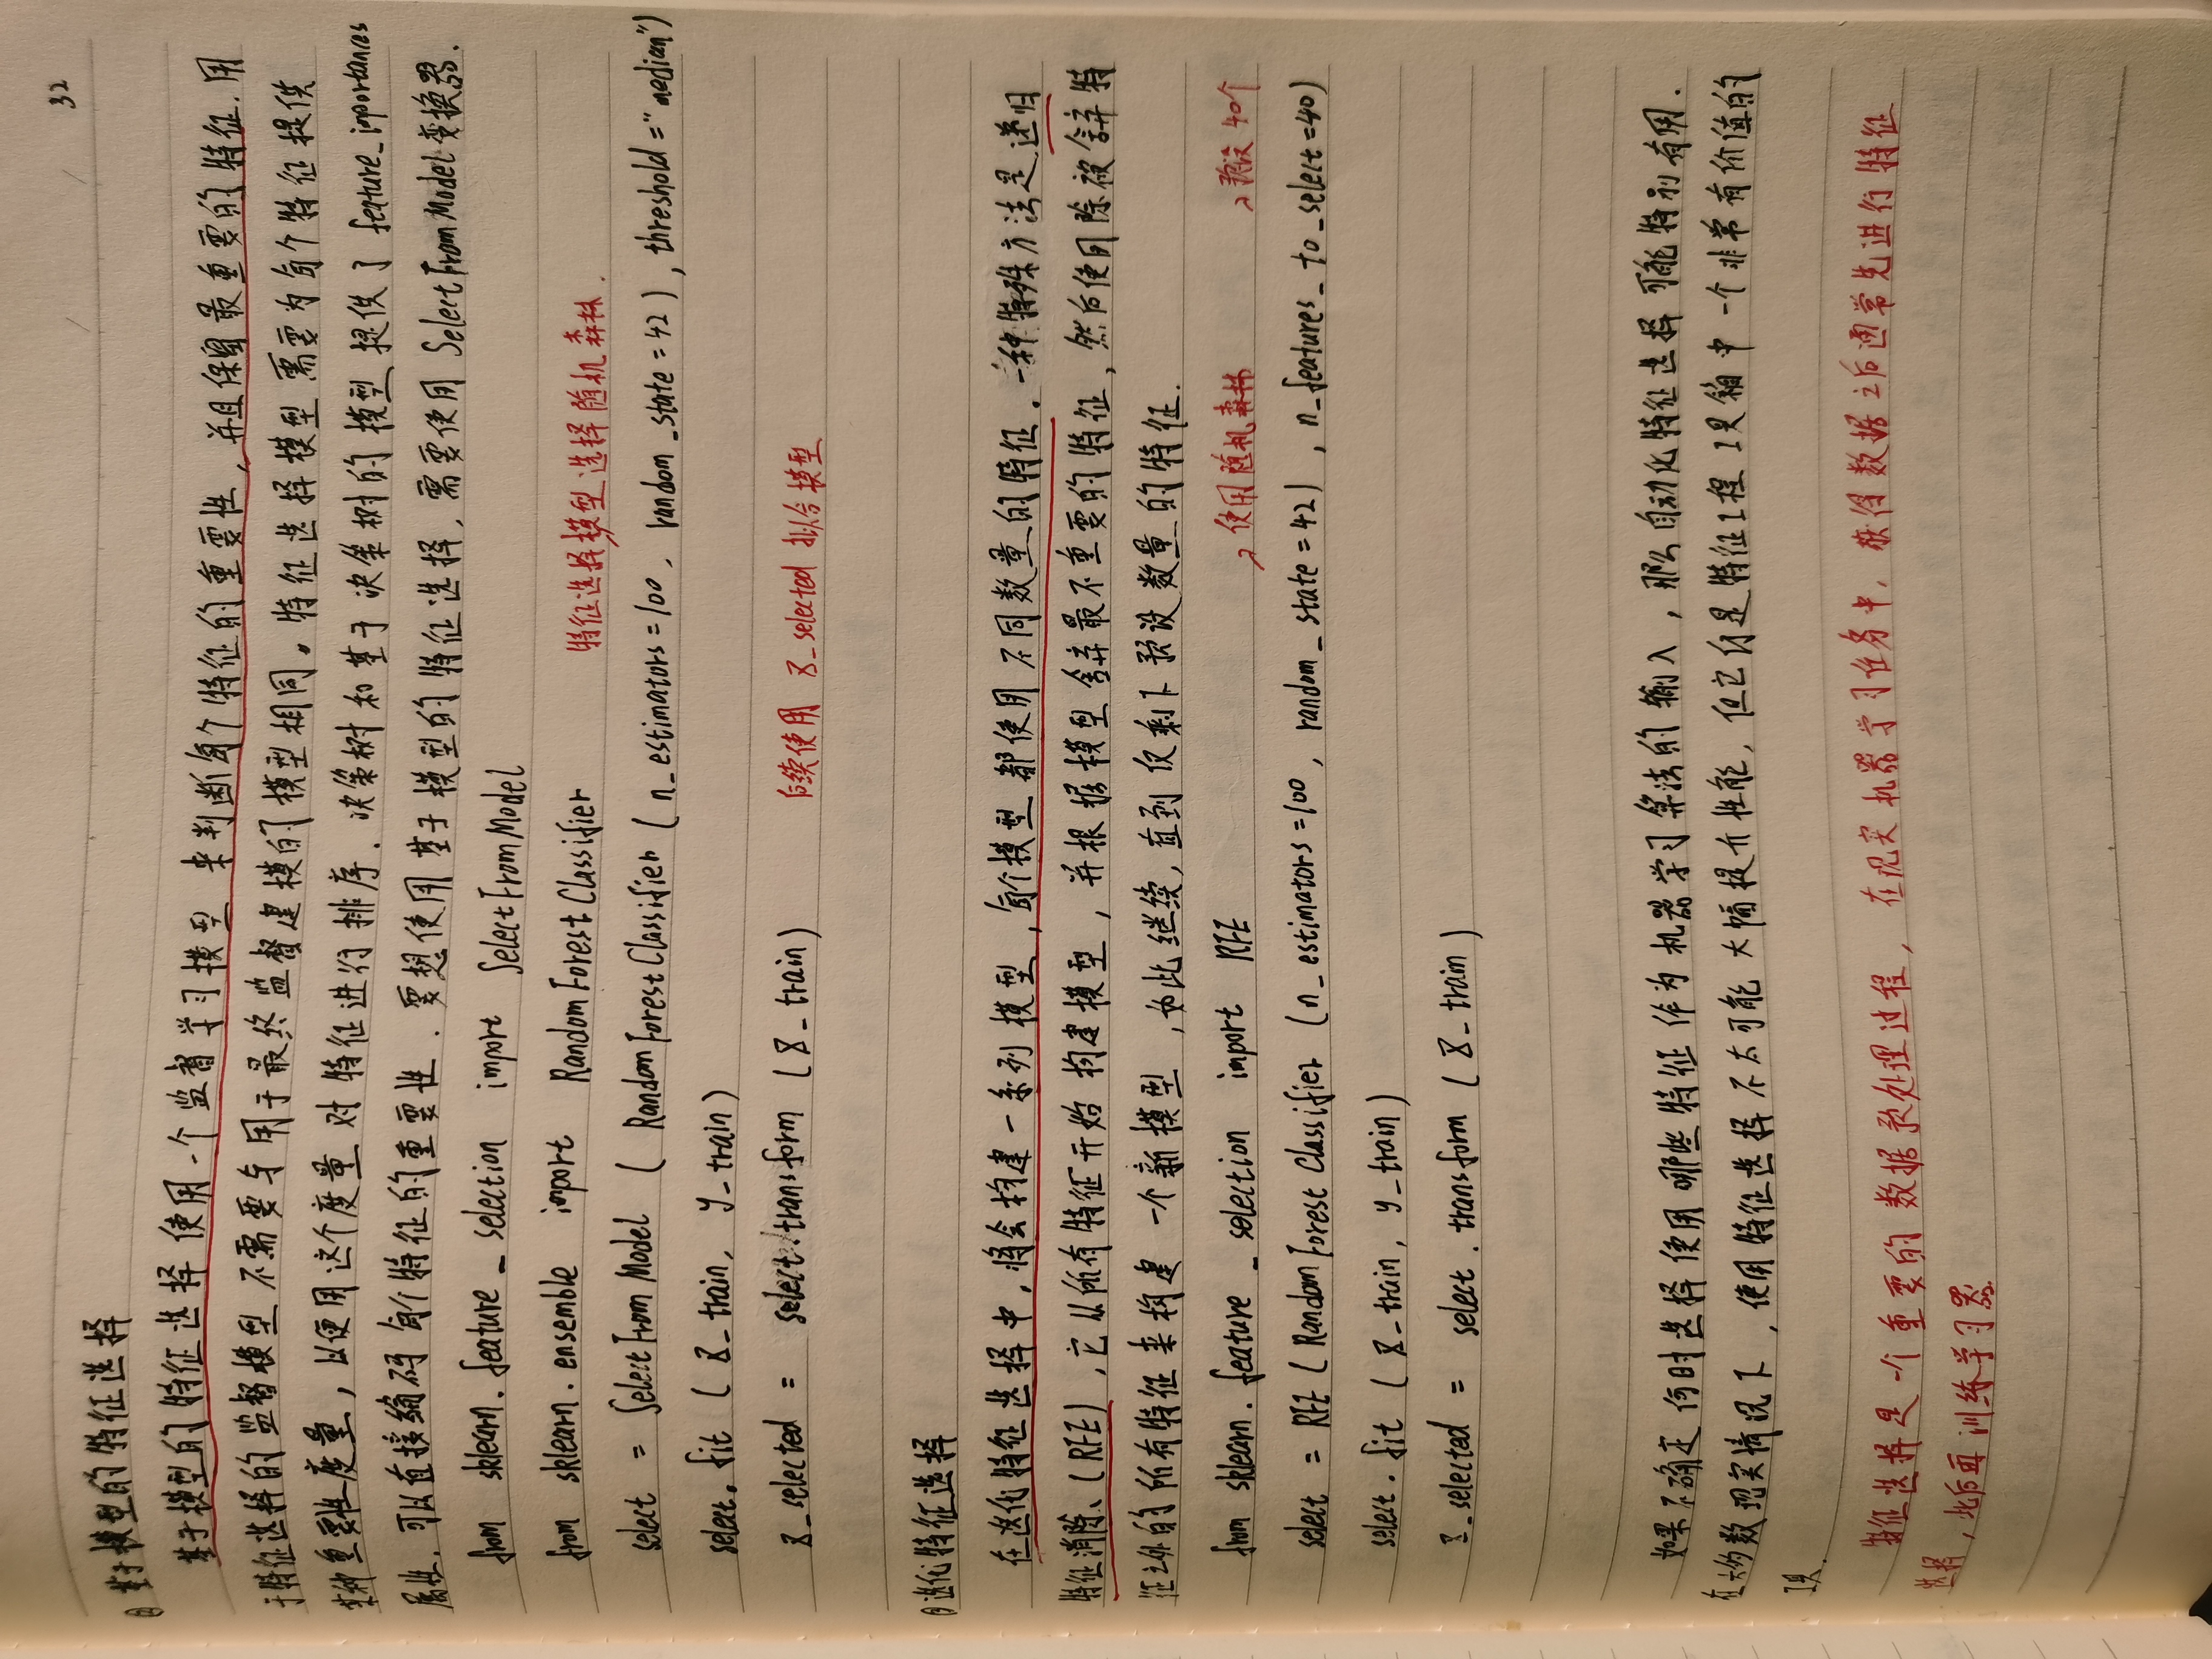 32
② 基于模型的特征选择
基于模型的特征选择使用一个监督学习模型来判断每个特征的重要性,并且保留最重要的特征.用
于特征选择的监督模型不需要与用于最终监督建模的模型相同。特征选择模型需要为每个特征提供
某种重要性度量,以便用这个度量对特征进行排序.决策树和基于决策树的模型提供了feature_importances
属性.可以直接编码每个特征的重要性.要想使用基于模型的特征选择,需要使用SelectFromModel变换器.
from sklearn.feature_selection import SelectFromModel
特征选择模型选择随机森林.
from sklearn.ensemble import RandomForestClassifier
select = SelectFromModel (RandomForestClassifier (n_estimators=100, random_state=42), threshold="median")
select.fit (X_train, y_train)
后续使用 X_selected 拟合模型
X_selected = select.transform (X_train)
③迭代特征选择
在迭代特征选择中,将会构建一系列模型,每个模型都使用不同数量的特征.一种特殊方法是递归
特征消除(RFE),它从所有特征开始构建模型,并根据模型舍弃最不重要的特征,然后使用除被舍弃特
征之外的所有特征来构建一个新模型,如此继续,直到仅剩下预设数量的特征.
使用随机森林 预设40个
from sklearn.feature_selection import RFE
select = RFE (RandomForestClassifier (n_estimators=100, random_state=42), n_features_to_select=40)
select.fit (X_train, y_train)
X_selected = select.transform (X_train)
如果不确定何时选择使用哪些特征作为机器学习算法的输入,那么自动化特征选择可能特别有用.
在大多数现实情况下,使用特征选择不太可能大幅提升性能,但它仍是特征工程工具箱中一个非常有价值的
工具.
特征选择是一个重要的数据预处理过程,在现实机器学习任务中,获得数据之后通常先进行特征
选择,此后再训练学习器